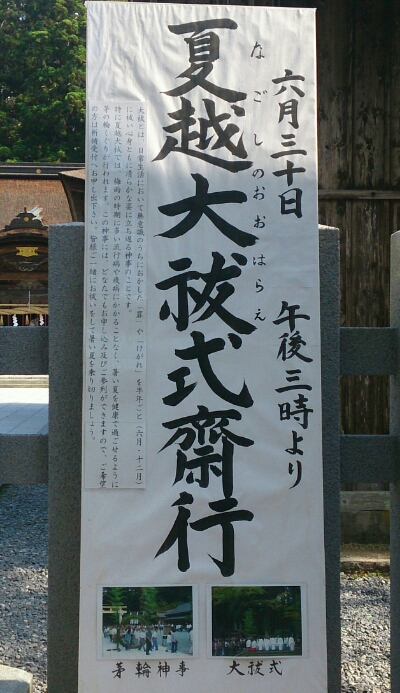 六月三十日　午後三時より
なごしのおおはらえ
夏越大祓式齋行
大祓とは、日常生活において無意識のうちにおかした「罪」や「けがれ」を半年ごと（六月・十二月）
に祓い心身ともに清らかな姿に立ち返る神事のことです。
特に夏越大祓では、梅雨の時期に多い流行病や疫病にかかることなく、暑い夏を健康で過ごせるように
茅の輪くぐりが行われます。この神事には、どなたでもお申し込み及びご参列ができますので、ご希望
の方は祈祷受付へお申し出下さい。皆様ご一緒にお祓いをして暑い夏を乗り切りましょう。
茅輪神事
大祓式